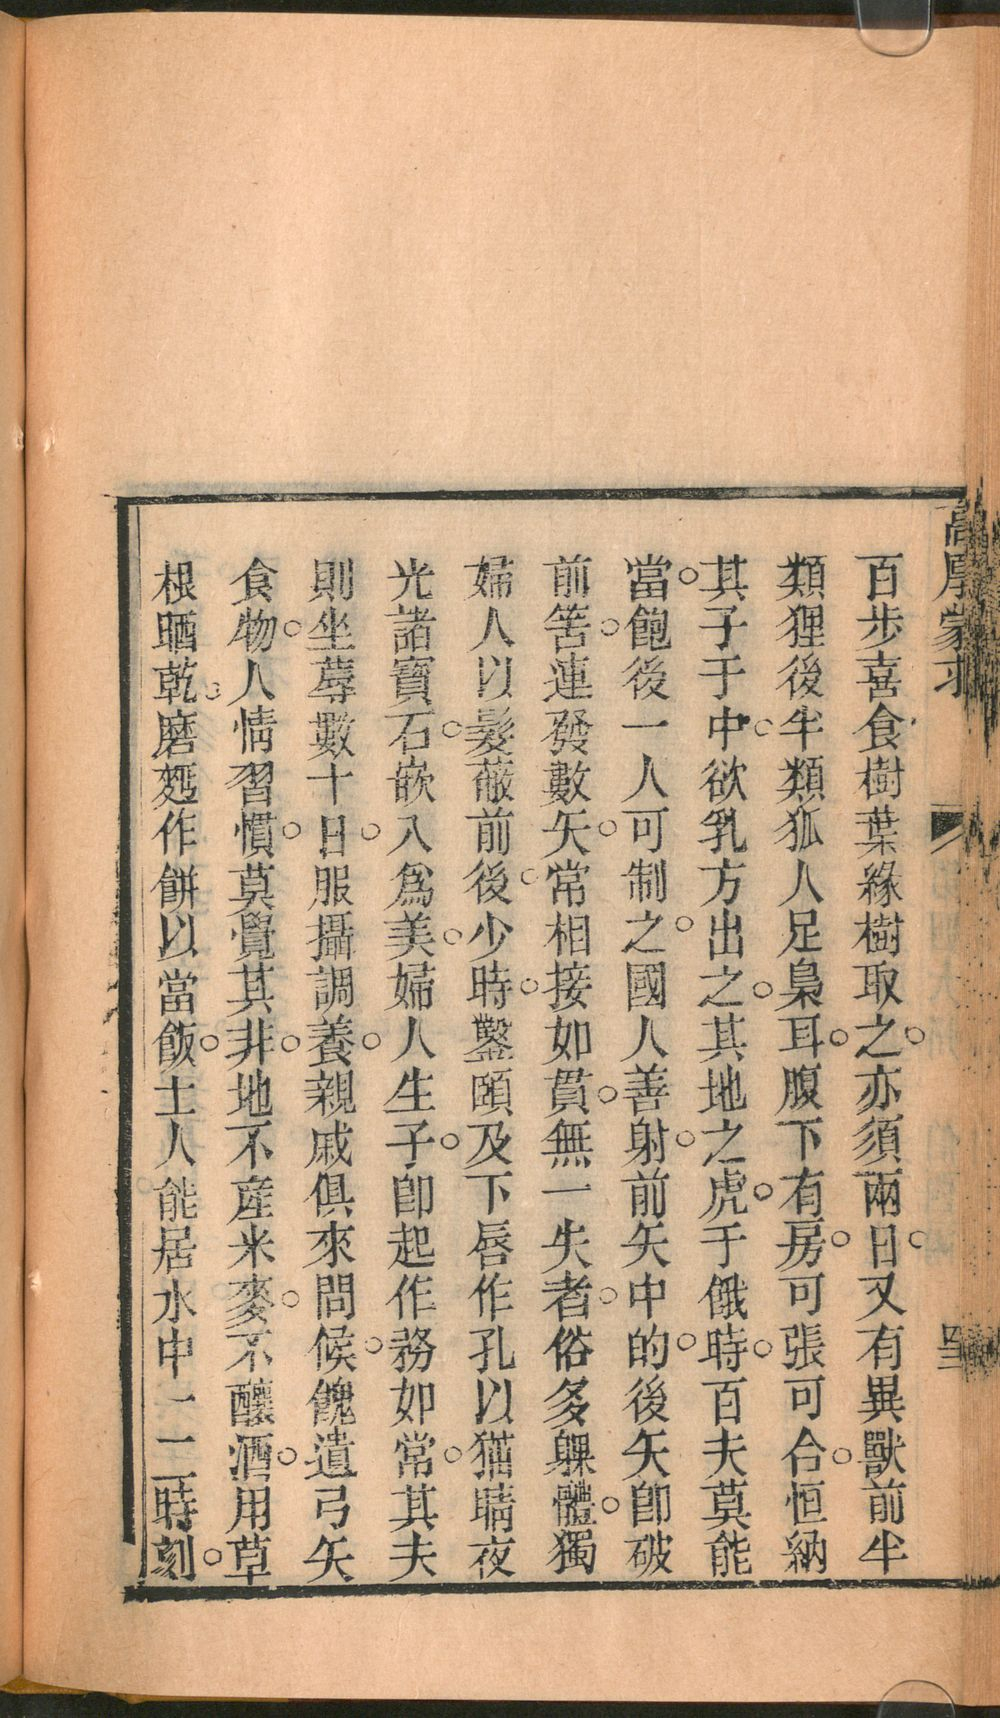 高厚蒙求
百步喜食樹葉緣樹取之。亦須兩日。又有異獸前半
類狸後半類狐人足梟耳。腹下有房。可張可合。恒納
其子于中。欲乳方出之。其地之虎。于餓時。百夫莫能
當。飽後一人可制之。國人善射。前矢中的。後矢卽破
前筈。連發數矢。常相接如貫。無一失者。俗多躶體。獨
婦人以髮蔽前後。少時。鑿頤及下唇作孔以猫睛夜
光諸寶石。嵌入爲美。婦人生子。卽起作務如常。其夫
則坐蓐數十日。服攝調養。親戚俱來問候。餽遺弓矢
食物。人情習慣。莫覺其非。地不産米麥。不釀酒。用草
根晒乾。磨麪作餅以當飯。土人能居水中一二時刻。